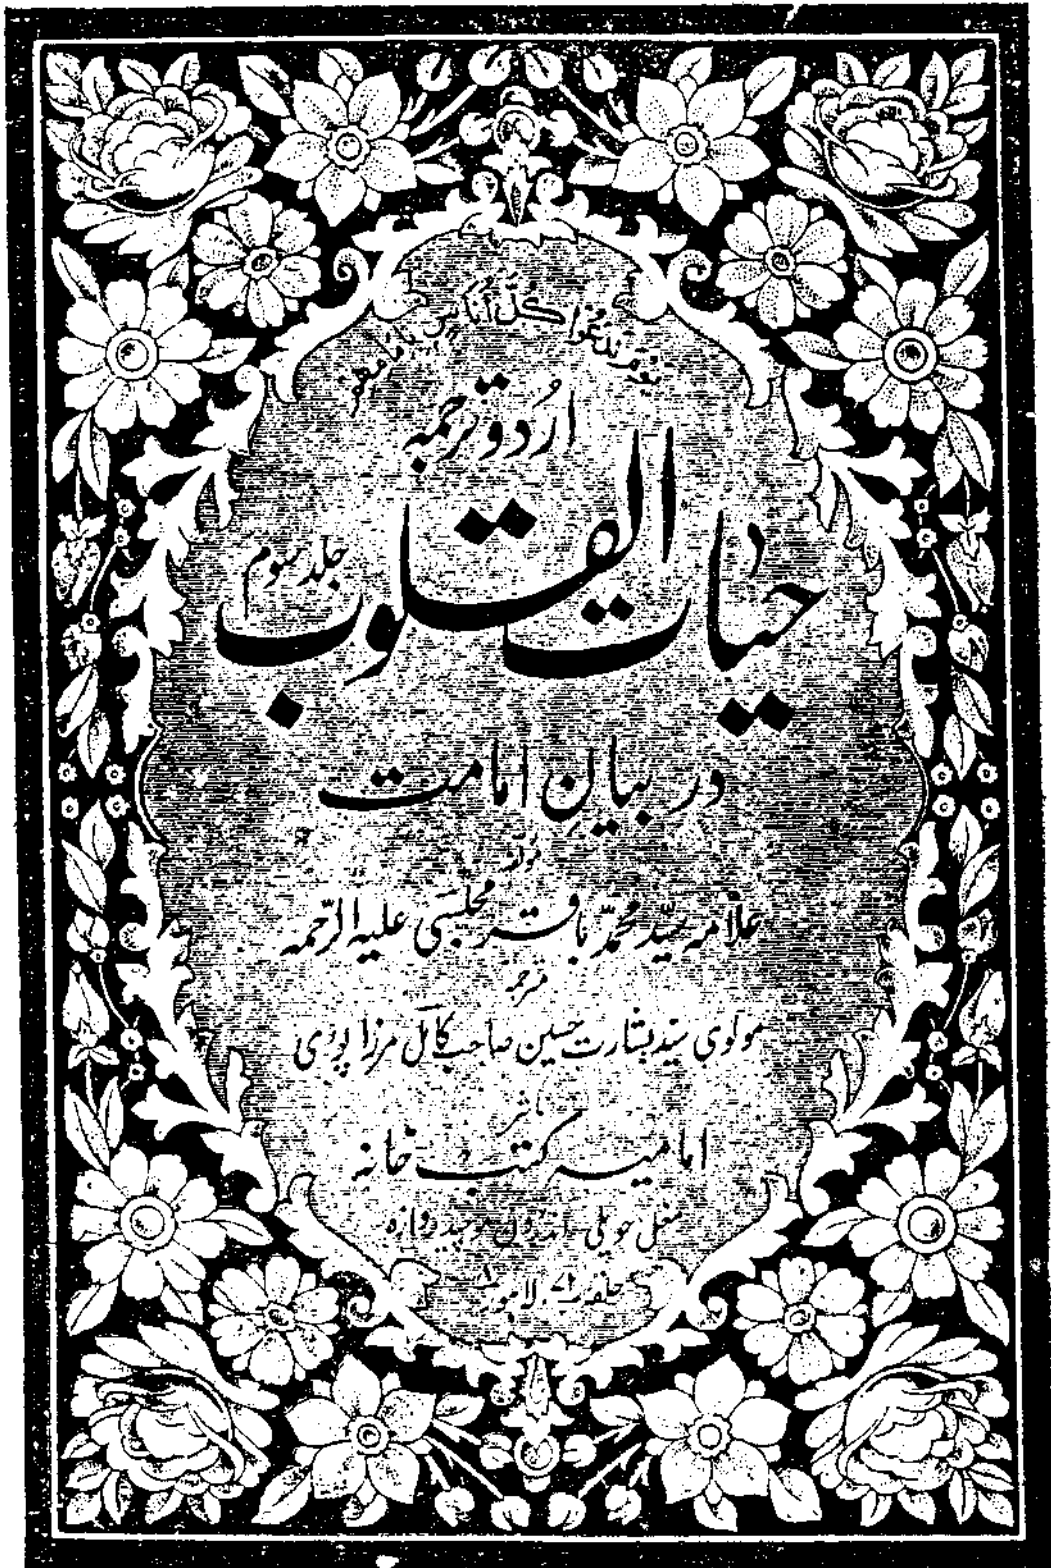 یوم ندعوا کل اناس بامامهم
اردو ترجمہ
حیات القلوب
جلد سوم
در بیان امامت
مؤلفہ
علامہ سید محمد باقر مجلسی علیہ الرحمہ
مترجمہ
مولوی سید بشارت حسین صاحب کامل مرزا پوری
ناشر
امامیہ کتب خانہ
مغل حویلی اندرون موچیدروازہ
حلقہ ۲ لاہور